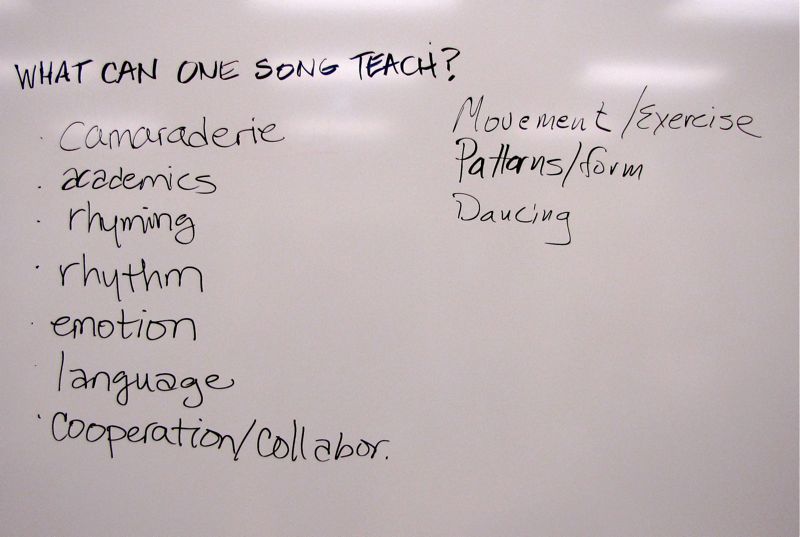 WHAT CAN ONE SONG TEACH?
· Camaraderie
· academics
· rhyming
· rhythm
· emotion
· language
· Cooperation/Collabor.
Movement/Exercise
Patterns/form
Dancing